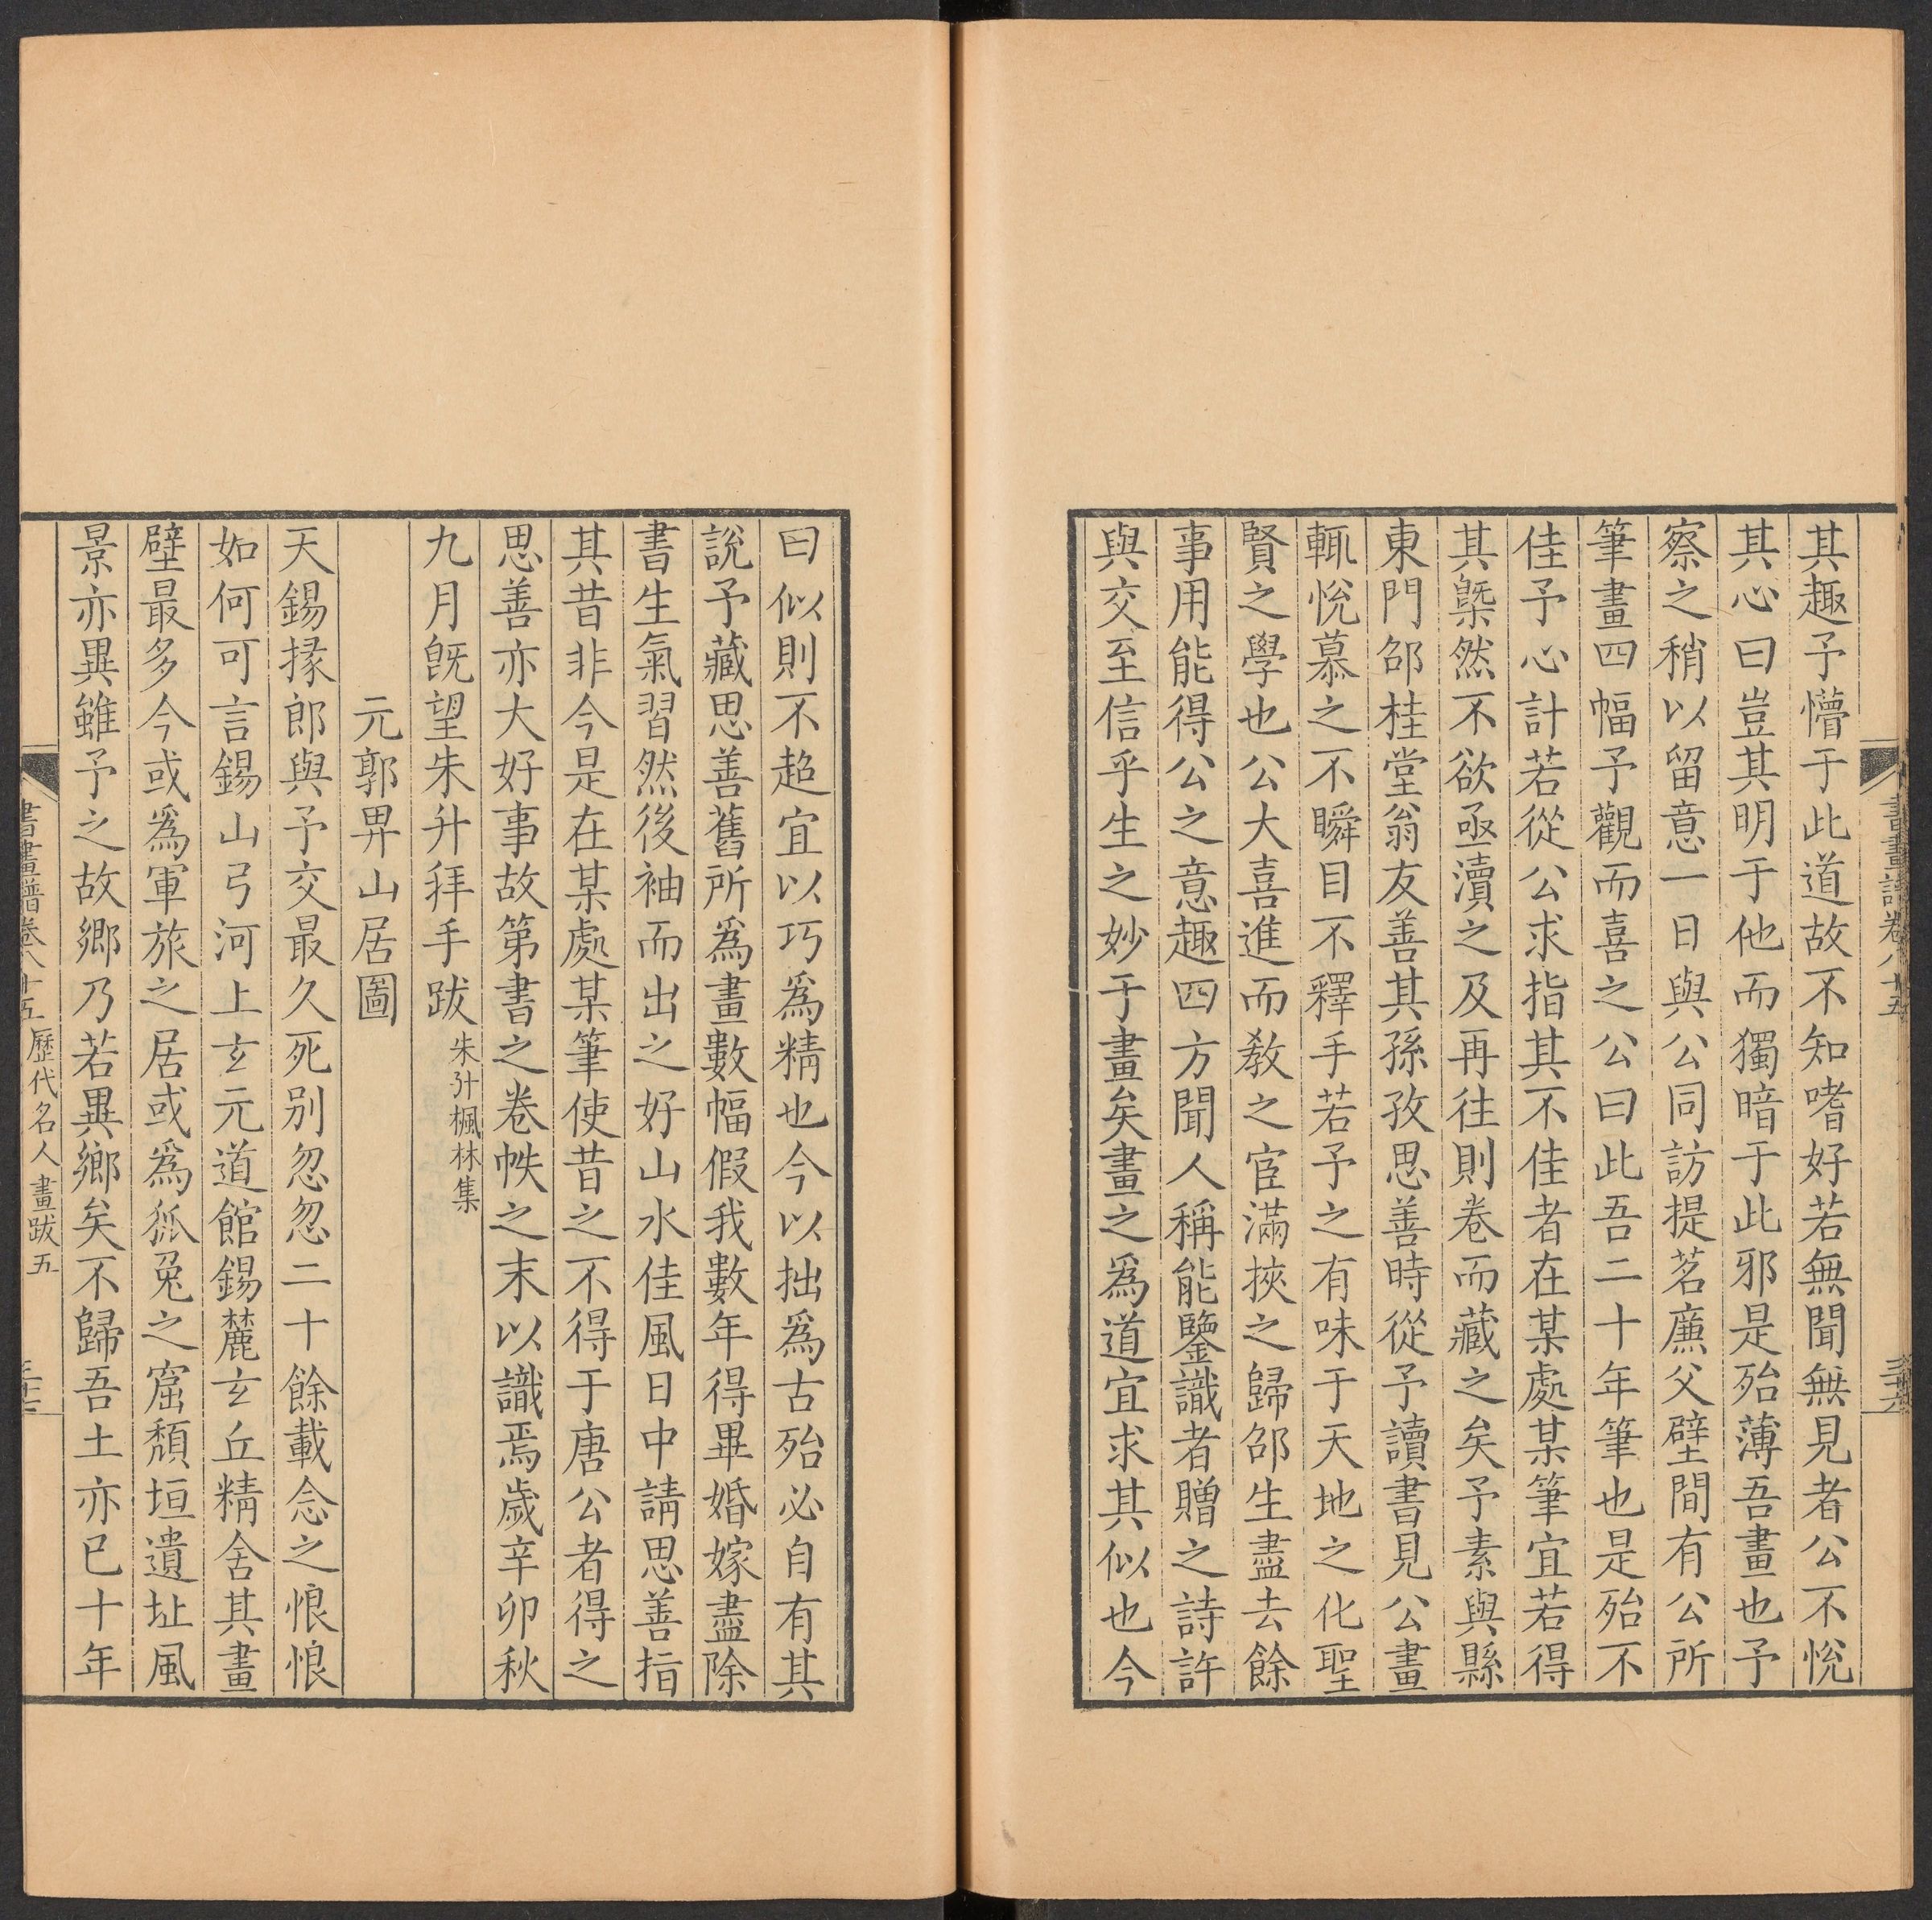 其趣予懵于此道故不知嗜好若無聞無見者公不悅
其心曰豈其明于他而獨暗于此邪是殆薄吾畫也予
察之稍以留意一日與公同訪提茗廉父壁間有公所
筆畫四幅予觀而喜之公曰此吾二十年筆也是殆不
佳予心計若從公求指其不佳者在某處某筆宜若得
其槩然不欲亟瀆之及再往則卷而藏之矣予素與縣
東門邵桂堂翁友善其孫孜思善時從予讀書見公畫
輒悅慕之不瞬目不釋手若予之有味于天地之化聖
賢之學也公大喜進而教之宦滿挾之歸邵生盡去餘
事用能得公之意趣四方聞人稱能鑒識者贈之詩許
與交至信乎生之妙于畫矣畫之爲道宜求其似也今
曰似則不超宜以巧爲精也今以拙爲古殆必自有其
說予藏思善舊所爲畫數幅假我數年得畢婚嫁盡除
書生氣習然後袖而出之好山水佳風日中請思善指
其昔非今是在某處某筆使昔之不得于唐公者得之
思善亦大好事故第書之卷帙之末以識焉歲辛卯秋
九月既望朱升拜手跋 朱升楓林集
元郭畀山居圖
天錫掾郎與予交最久死别忽忽二十餘載念之悢悢
如何可言錫山弓河上玄元道館錫麓玄丘精舍其畫
壁最多今或爲軍旅之居或爲狐兔之窟頹垣遺址風
景亦異雖予之故鄉乃若異鄉矣不歸吾土亦已十年
書畫譜卷八十五 歷代名人畫跋五